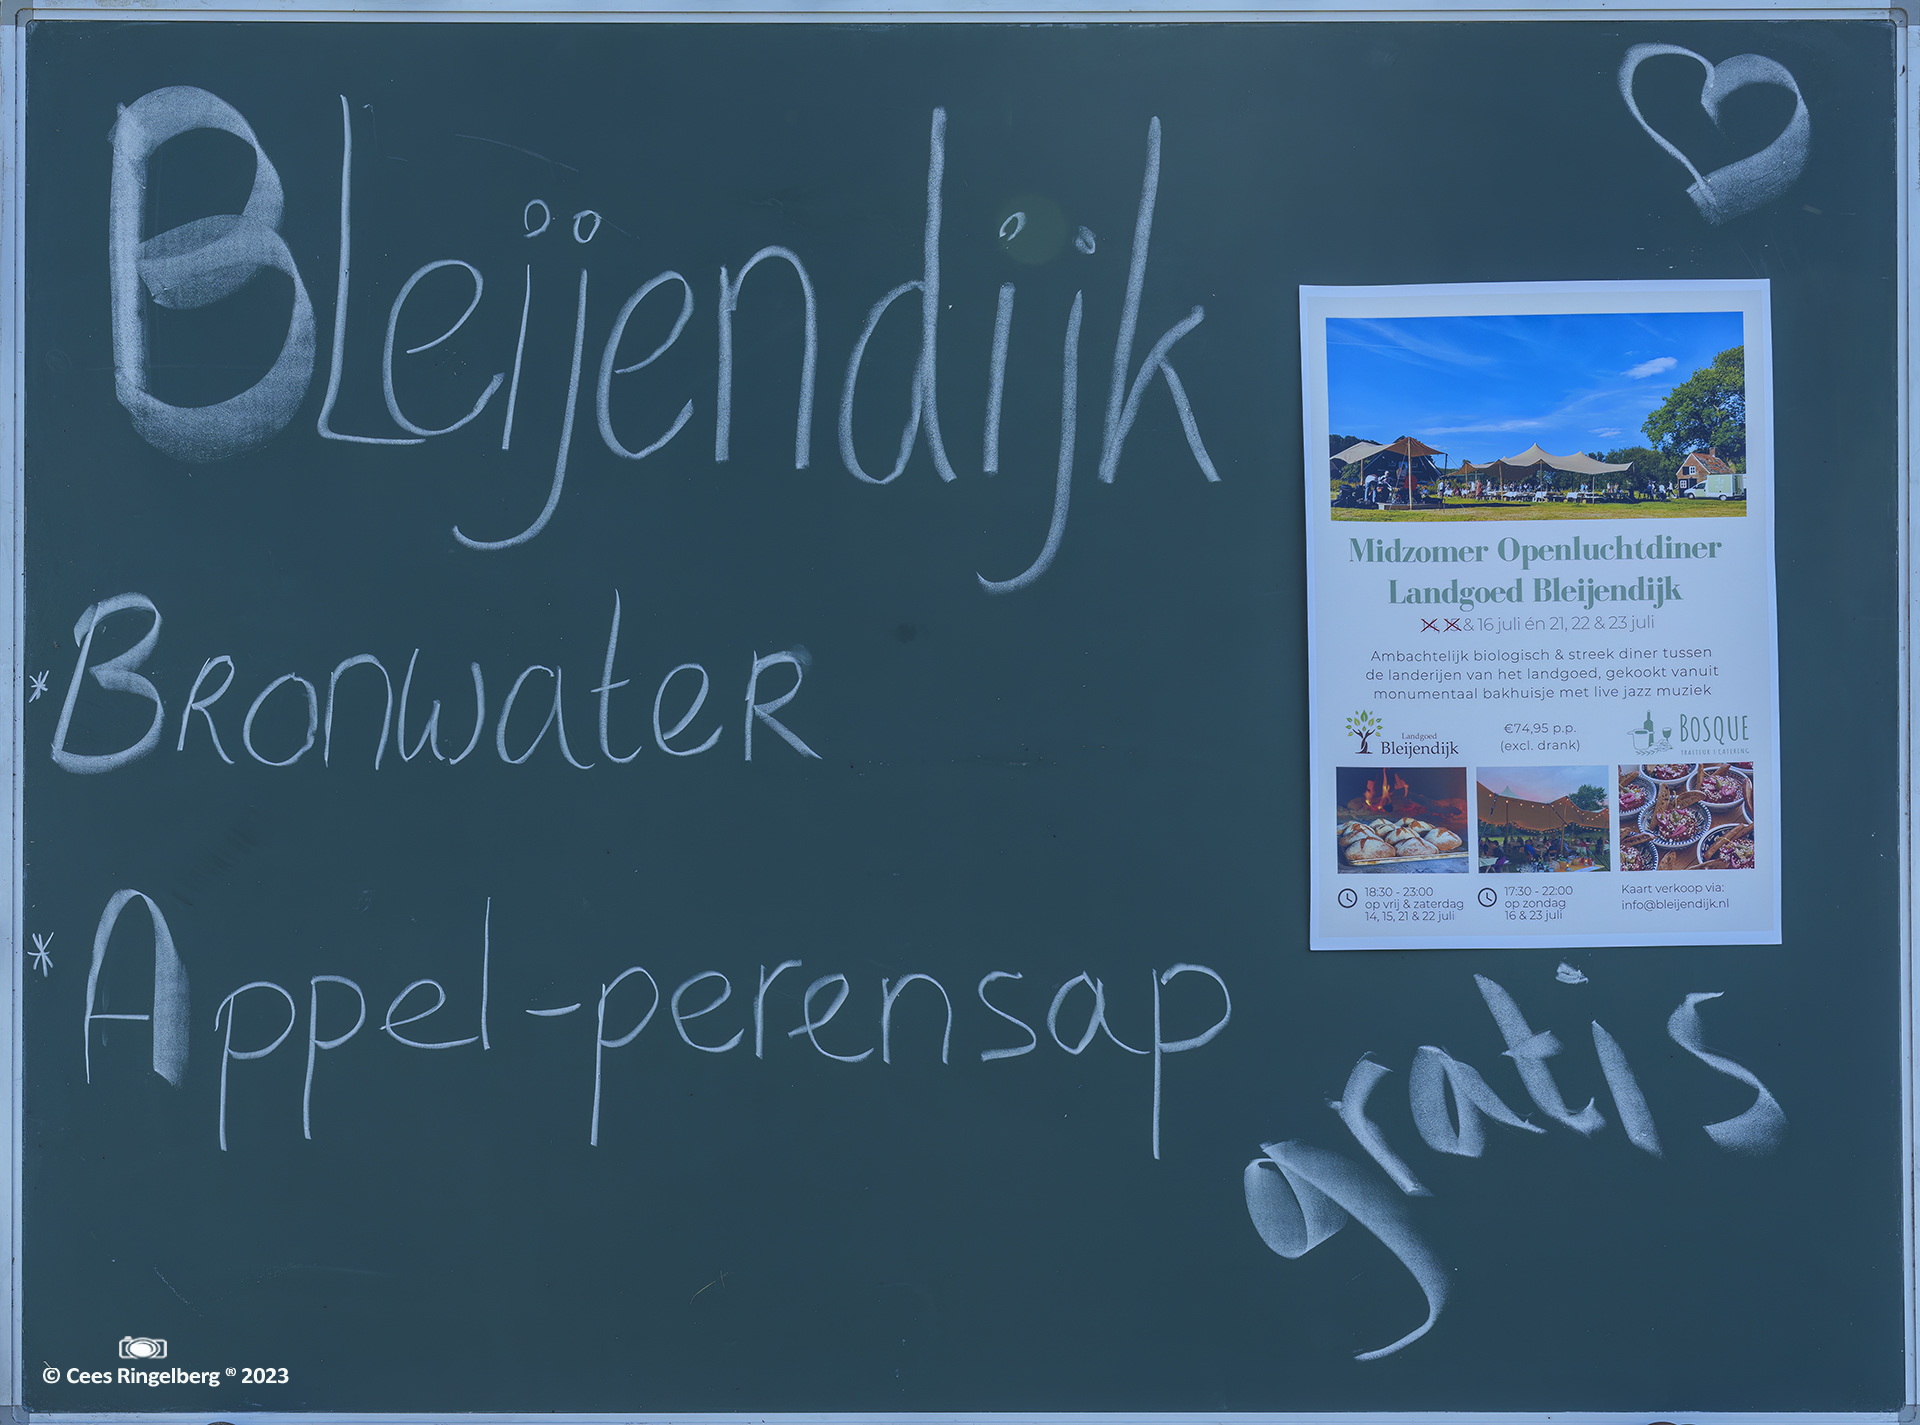 Bleijendijk
* Bronwater
* Appel-perensap
gratis
Midzomer Openluchtdiner
Landgoed Bleijendijk
14, 15 & 16 juli én 21, 22 & 23 juli
Ambachtelijk biologisch & streek diner tussen
de landerijen van het landgoed, gekookt vanuit
monumentaal bakhuisje met live jazz muziek
Landgoed
Bleijendijk
€74,95 p.p.
(excl. drank)
BOSQUE
TRAITEUR | CATERING
18:30 - 23:00
op vrij & zaterdag
14, 15, 21 & 22 juli
17:30 - 22:00
op zondag
16 & 23 juli
Kaart verkoop via:
info@bleijendijk.nl
© Cees Ringelberg ® 2023